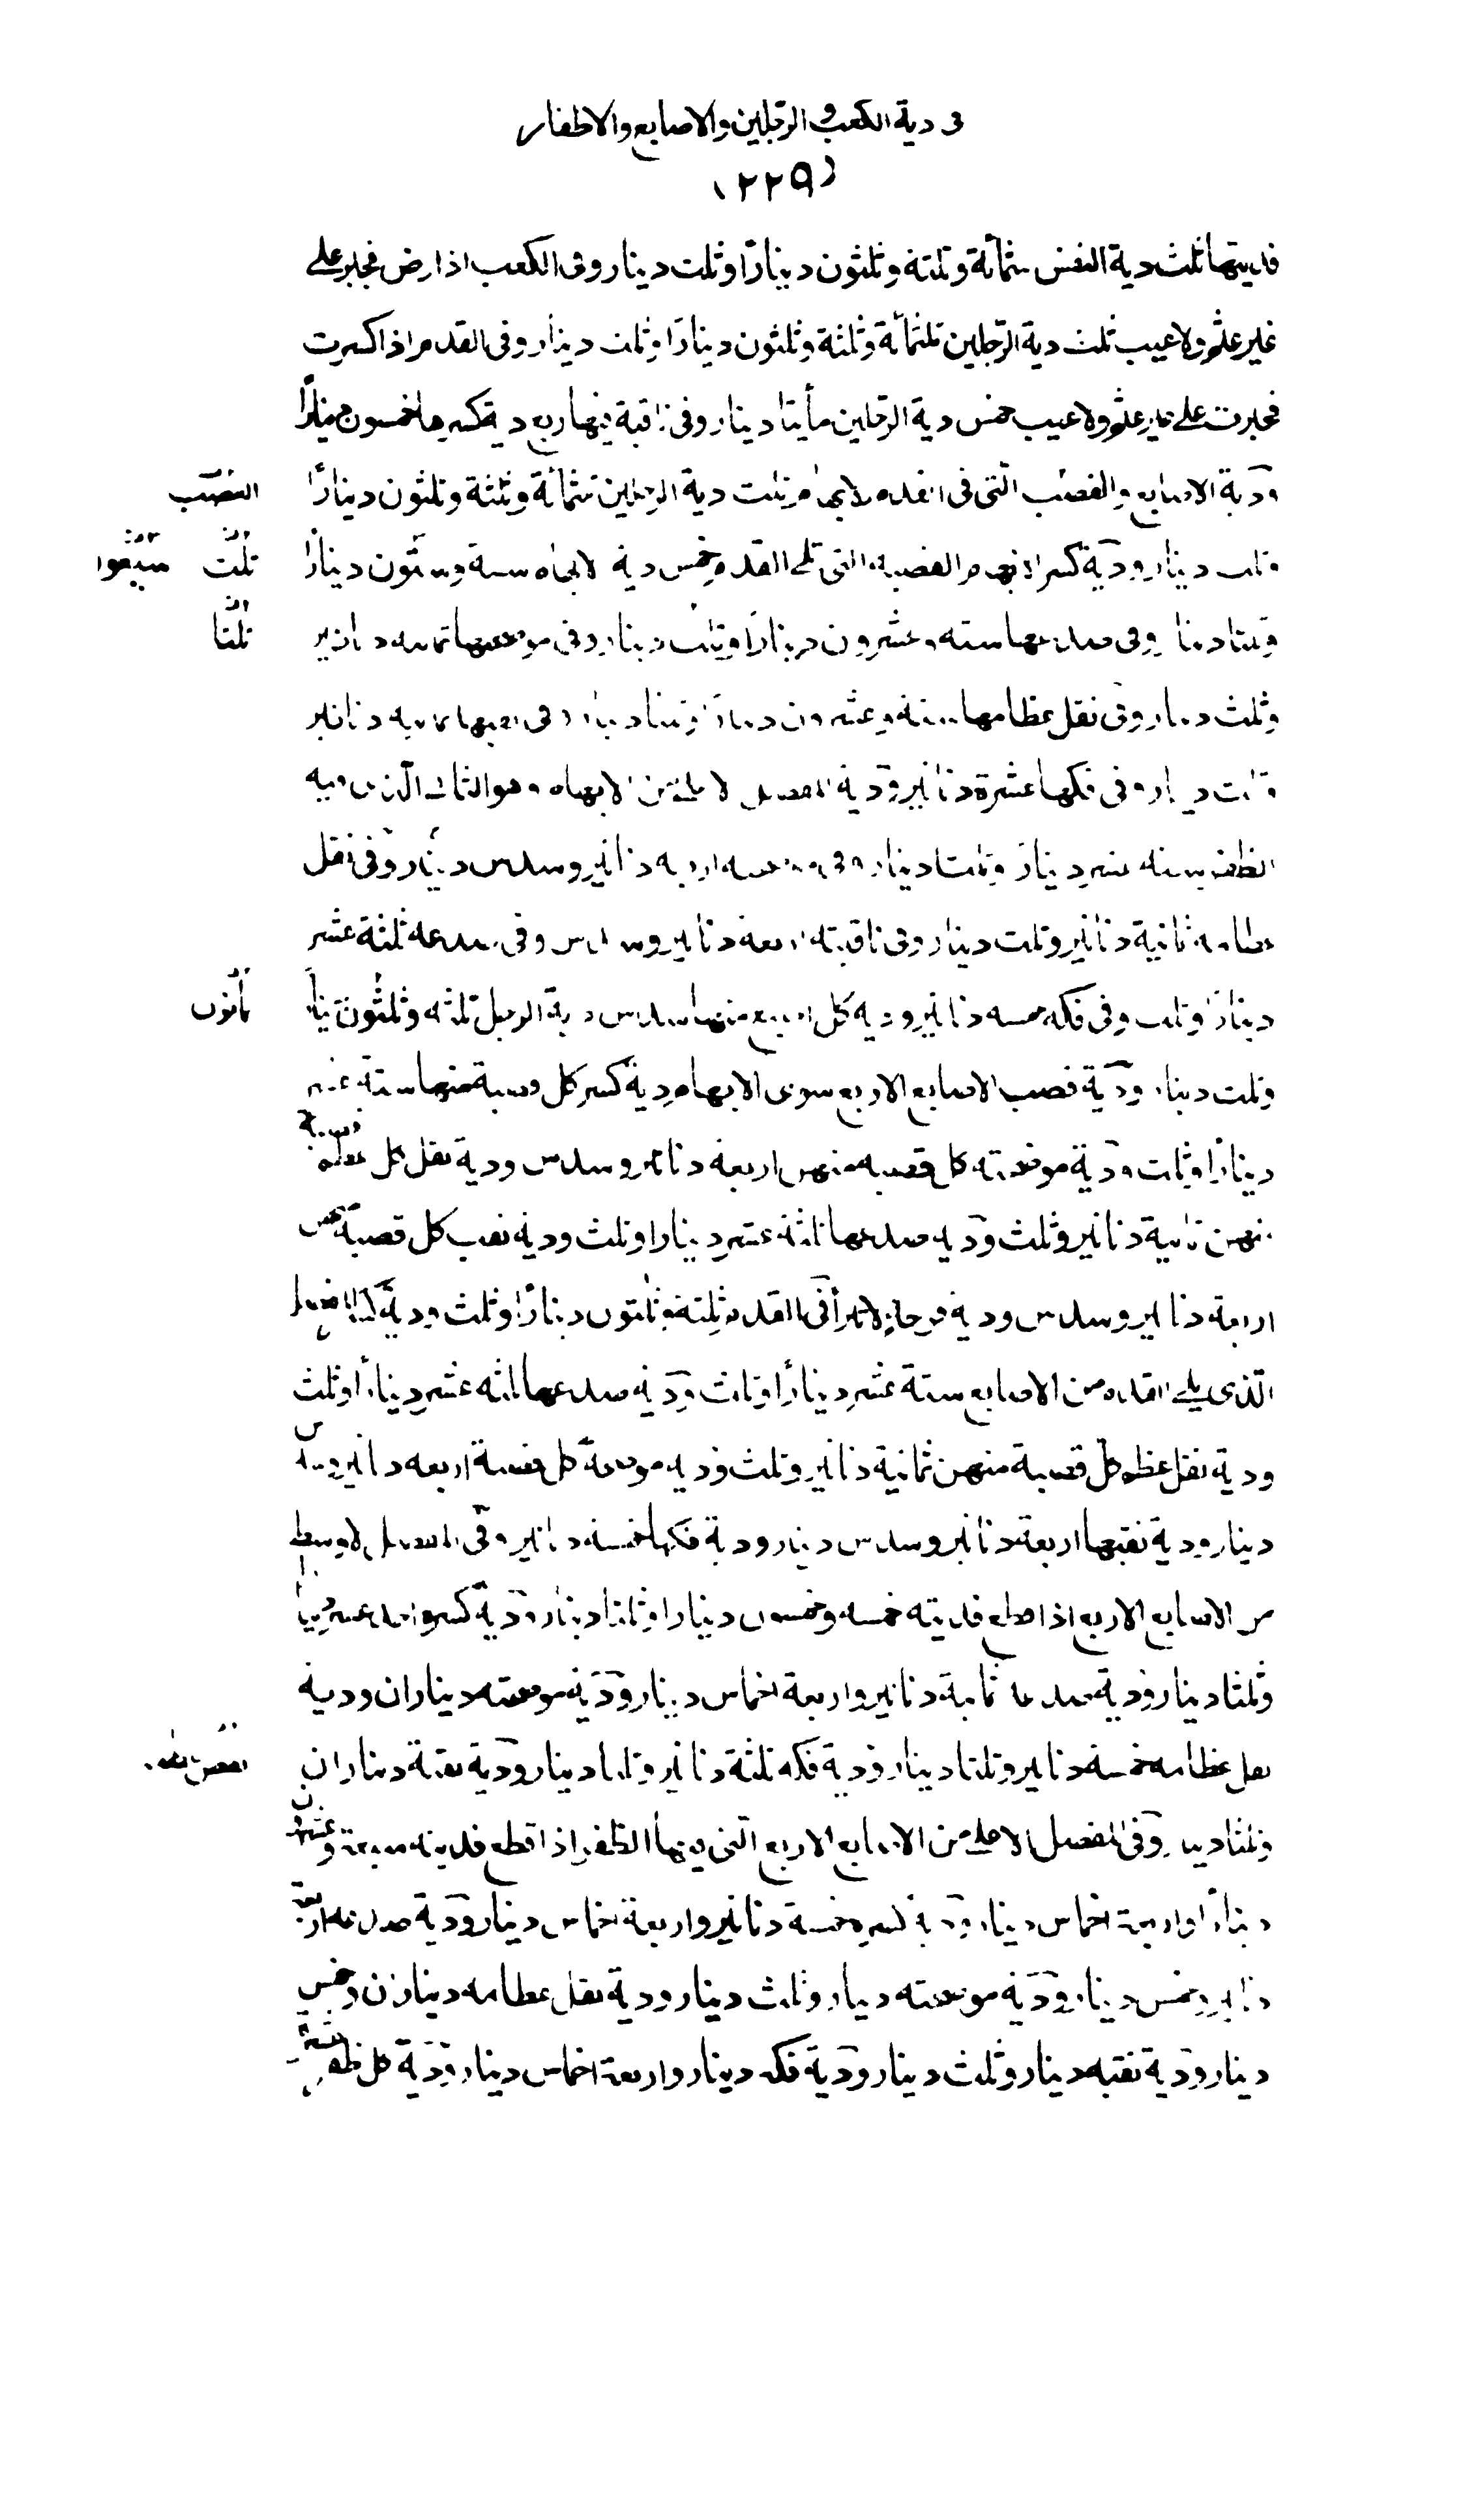 فى دية الكعب و الرجلين والاصابع والاظفار
(٢٢٩)
فديتها ثلث دية النفس ثلثمائة وثلثة وثلثون دينارًا وثلث دينار وفى الكعب اذا رض فجبر على
غير عثم ولا عيب ثلث دية الرجلين ثلثمائة وثلثة وثلثون دينارًا وثلث دينار وفى القدم اذا كسرت
فجبرت على غير عثم ولا عيب خمس دية الرجلين مأيتا دينار وفى ناقبة فيها ربع دية كسرها خمسون دينارًا
ودية الاصابع والقصب التى فى القدم الابهام ثلث دية الرجلين ثلثمائة وثلثة وثلثون دينارًا
القصب
وثلث دينار ودية كسر الابهام القصبة التى تلى القدم خمس دية الابهام ستة وستون دينارًا
ثلث
وثلثا دينار وفى صدعها ستة وعشرون دينارًا وثلث دينار وفى موضحتها ثمانية دنانير
ثلثا
وثلث دينار وفى نقل عظامها ستة وعشرون دينارًا وثلثا دينار وفى نقبها ثمانية دنانير
وثلث دينار وفى فكها عشرة دنانير ودية المفصل الاعلى من الابهام وهو الثانى الذى فيه
الظفر ستة عشر دينارًا وثلثا دينار وفى موضحته اربعة دنانير وسدس دينار وفى نقل
عظامه ثمانية دنانير وثلث دينار وفى ناقبته اربعة دنانير وسدس وفى صدعه ثلثة عشر
دينارًا وثلث وفى فكه خمسة دنانير ودية كل اصبع منها سدس دية الرجل ثلثة وثلثون دينارًا
وثلث دينار ودية قصب الاصابع الاربع سوى الابهام دية كسر كل قصبة منها ستة عشر
دينارًا وثلث ودية موضحة كل قصبة منهن اربعة دنانير وسدس ودية نقل كل عظم قصبة
منهن ثمانية دنانير وثلث ودية صدعها ثلثة عشر دينارًا وثلث ودية نقب كل قصبة منهن
اربعة دنانير وسدس ودية قرحة لا تبرأ فى القدم ثلثة وثلثون دينارًا وثلث ودية كسر المفصل
الذى يلى القدم من الاصابع ستة عشر دينارًا وثلث ودية صدعها ثلثة عشر دينارًا وثلث
ودية نقل عظم كل قصبة منهن ثمانية دنانير وثلث ودية موضحة كل قصبة اربعة دنانير وسدس
دينار ودية نقبها اربعة دنانير وسدس دينار ودية فكها خمسة دنانير وفى المفصل الاوسط
من الاصابع الاربع اذا قطع فديته خمسة وخمسون دينارًا وثلثا دينار ودية كسره احد عشر دينارًا
وثلثا دينار ودية صدعه ثمانية دنانير واربعة اخماس دينار ودية موضحته ديناران ودية
نقل عظامه خمسة دنانير وثلثا دينار ودية فكه ثلثة دنانير وثلثا دينار ودية نقبه ديناران
وثلثا دينار وفى المفصل الاعلى من الاصابع الاربع التى فيها الظفر اذا قطع فديته سبعة وعشرون
دينارًا واربعة اخماس دينار ودية كسره خمسة دنانير واربعة اخماس دينار ودية صدعه اربعة
دنانير وخمس دينار ودية موضحته دينار وثلث دينار ودية نقل عظامه ديناران وخمس
دينار ودية نقبه دينار وثلث دينار ودية فكه دينار واربعة اخماس دينار ودية كل ظفر عشرة